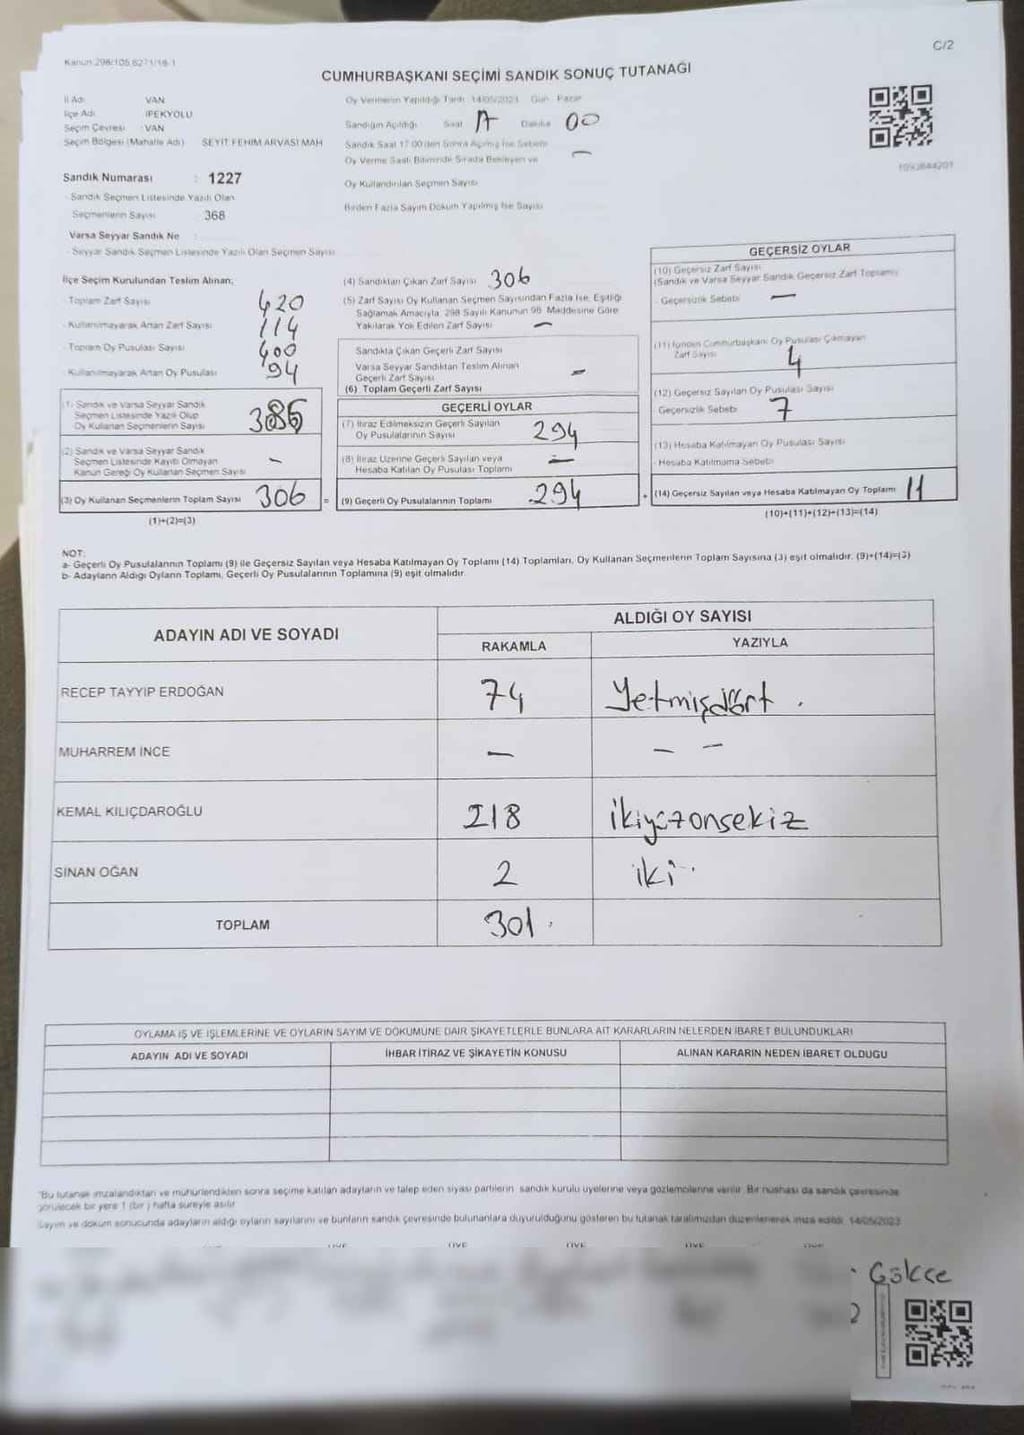 Kanun 298/105,6271/18-1
C/2
CUMHURBAŞKANI SEÇİMİ SANDIK SONUÇ TUTANAĞI
İl Adı VAN
İlçe Adı İPEKYOLU
Seçim Çevresi : VAN
Seçim Bölgesi (Mahalle Adı) SEYİT FEHİM ARVASİ MAH
Sandık Numarası : 1227
Sandık Seçmen Listesinde Yazılı Olan
Seçmenlerin Sayısı 368
Varsa Seyyar Sandık No
- Seyyar Sandık Seçmen Listesinde Yazılı Olan Seçmen Sayısı
Oy Vermenin Yapıldığı Tarih 14/05/2023 Gün Pazar
Sandığın Açıldığı Saat 17 Dakika 00
Sandık Saat 17:00'den Sonra Açılmış İse Sebebi
Oy Verme Saati Bitiminde Sırada Bekleyen ve –
Oy Kullandırılan Seçmen Sayısı
Birden Fazla Sayım Döküm Yapılmış İse Sayısı
1093844201
İlçe Seçim Kurulundan Teslim Alınan;
- Toplam Zarf Sayısı 420
- Kullanılmayarak Artan Zarf Sayısı 114
- Toplam Oy Pusulası Sayısı 400
- Kullanılmayarak Artan Oy Pusulası 94
(1) Sandık ve Varsa Seyyar Sandık
Seçmen Listesinde Yazılı Olup
Oy Kullanan Seçmenlerin Sayısı
(2) Sandık ve Varsa Seyyar Sandık
Seçmen Listesinde Kayıtlı Olmayan –
Kanun Gereği Oy Kullanan Seçmen Sayısı
(3) Oy Kullanan Seçmenlerin Toplam Sayısı 306 =
(1)+(2)=(3)
(4) Sandıktan Çıkan Zarf Sayısı 306
(5) Zarf Sayısı Oy Kullanan Seçmen Sayısından Fazla İse, Eşitliği
Sağlamak Amacıyla, 298 Sayılı Kanunun 98. Maddesine Göre
Yakılarak Yok Edilen Zarf Sayısı –
Sandıkta Çıkan Geçerli Zarf Sayısı
Varsa Seyyar Sandıktan Teslim Alınan –
Geçerli Zarf Sayısı
(6) Toplam Geçerli Zarf Sayısı
GEÇERLİ OYLAR
(7) İtiraz Edilmeksizin Geçerli Sayılan
Oy Pusulalarının Sayısı 294
(8) İtiraz Üzerine Geçerli Sayılan veya –
Hesaba Katılan Oy Pusulası Toplamı
(9) Geçerli Oy Pusulalarının Toplamı 294 +
GEÇERSİZ OYLAR
(10) Geçersiz Zarf Sayısı
(Sandık ve Varsa Seyyar Sandık Geçersiz Zarf Toplamı)
Geçersizlik Sebebi –
(11) İçinden Cumhurbaşkanı Oy Pusulası Çıkmayan
Zarf Sayısı 4
(12) Geçersiz Sayılan Oy Pusulası Sayısı
Geçersizlik Sebebi 7
(13) Hesaba Katılmayan Oy Pusulası Sayısı
- Hesaba Katılmama Sebebi
(14) Geçersiz Sayılan veya Hesaba Katılmayan Oy Toplamı 11
(10)+(11)+(12)+(13)=(14)
NOT:
a- Geçerli Oy Pusulalarının Toplamı (9) ile Geçersiz Sayılan veya Hesaba Katılmayan Oy Toplamı (14) Toplamları, Oy Kullanan Seçmenlerin Toplam Sayısına (3) eşit olmalıdır. (9)+(14)=(3)
b- Adayların Aldığı Oyların Toplamı, Geçerli Oy Pusulalarının Toplamına (9) eşit olmalıdır.
ADAYIN ADI VE SOYADI
ALDIĞI OY SAYISI
RAKAMLA YAZIYLA
RECEP TAYYİP ERDOĞAN 74 Yetmişdört .
MUHARREM İNCE – – –
KEMAL KILIÇDAROĞLU 218 ikiyüzonsekiz
SİNAN OĞAN 2 iki .
TOPLAM 301 .
OYLAMA İŞ VE İŞLEMLERİNE VE OYLARIN SAYIM VE DÖKÜMÜNE DAİR ŞİKAYETLERLE BUNLARA AİT KARARLARIN NELERDEN İBARET BULUNDUKLARI
ADAYIN ADI VE SOYADI İHBAR İTİRAZ VE ŞİKAYETİN KONUSU ALINAN KARARIN NEDEN İBARET OLDUĞU
"Bu tutanak imzalandıktan ve mühürlendikten sonra seçime katılan adayların ve talep eden siyasi partilerin sandık kurulu üyelerine veya gözlemcilerine verilir. Bir nüshası da sandık çevresinde
görülecek bir yere 1 (bir) hafta süreyle asılır.
Sayım ve döküm sonucunda adayların aldığı oyların sayılarını ve bunların sandık çevresinde bulunanlara duyurulduğunu gösteren bu tutanak tarafımızdan düzenlenerek imza edildi. 14/05/2023
ÜYE ÜYE ÜYE ÜYE
Gökçe